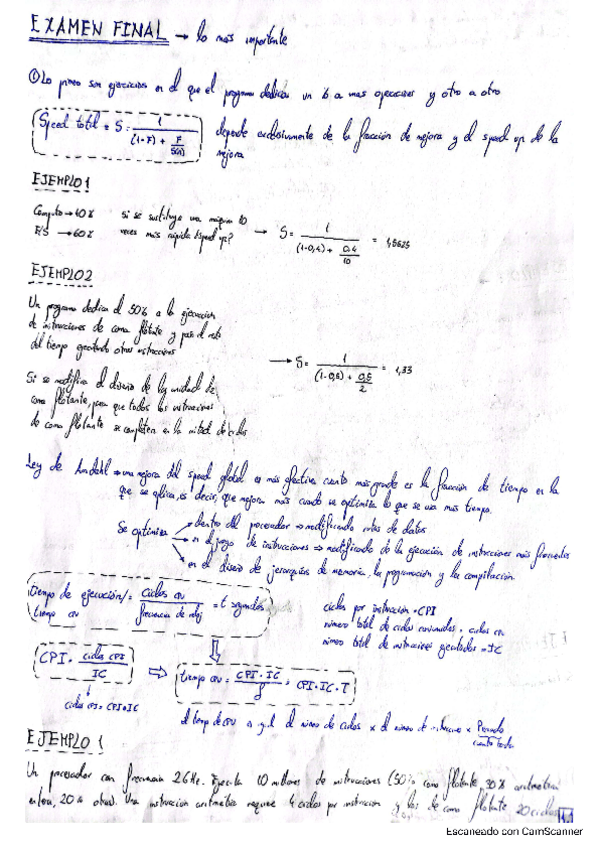 EXAMEN FINAL → lo mas importante
① Lo primero son ejercicios en el que el programa dedica un % a unas operaciones y otro a otro
Speed total = S = 1 / ((1-F) + F/S(n))
depende exclusivamente de la fracción de mejora y el speed up de la
mejora
EJEMPLO 1
Computo → 40%
E/S → 60%
Si se sustituye una máquina 10
veces más rápida ¿speed up?
→ S = 1 / ((1-0,4) + 0,4/10) = 1,5625
EJEMPLO 2
Un programa dedica el 50% a la ejecución
de instrucciones de coma flotante y pasa el resto
del tiempo ejecutando otras instrucciones
Si se modifica el diseño de la unidad de
coma flotante, para que todas las instrucciones
de coma flotante se completen en la mitad de ciclos
→ S = 1 / ((1-0,5) + 0,5/2) = 1,33
Ley de Amdahl → una mejora del speed global es más efectiva cuanto más grande es la fracción de tiempo en la
que se aplica, es decir, que mejora más cuando se optimiza lo que se usa más tiempo.
Se optimiza
dentro del procesador ⇒ modificando rutas de datos
en el juego de instrucciones ⇒ modificando la ejecución de instrucciones más frecuentes
en el diseño de jerarquías de memoria, la programación y la compilación.
tiempo de ejecución / tiempo CPU = ciclos CPU / frecuencia de reloj = t segundos
ciclos por instrucción = CPI
número total de ciclos consumidos = ciclos CPU
número total de instrucciones ejecutadas = IC
CPI = ciclos CPU / IC
ciclos CPU = CPI · IC
⇒ tiempo CPU = CPI · IC / f = CPI · IC · T
el tiempo de CPU es igual el número de ciclos x el número de instrucciones x Periodo
EJEMPLO 1
Un procesador con frecuencia 2GHz. Ejecuta 10 millones de instrucciones (50% coma flotante, 30% aritmética
entera, 20% otras). Una instrucción aritmética requiere 4 ciclos por instrucción y las de coma flotante 20 ciclos
Escaneado con CamScanner